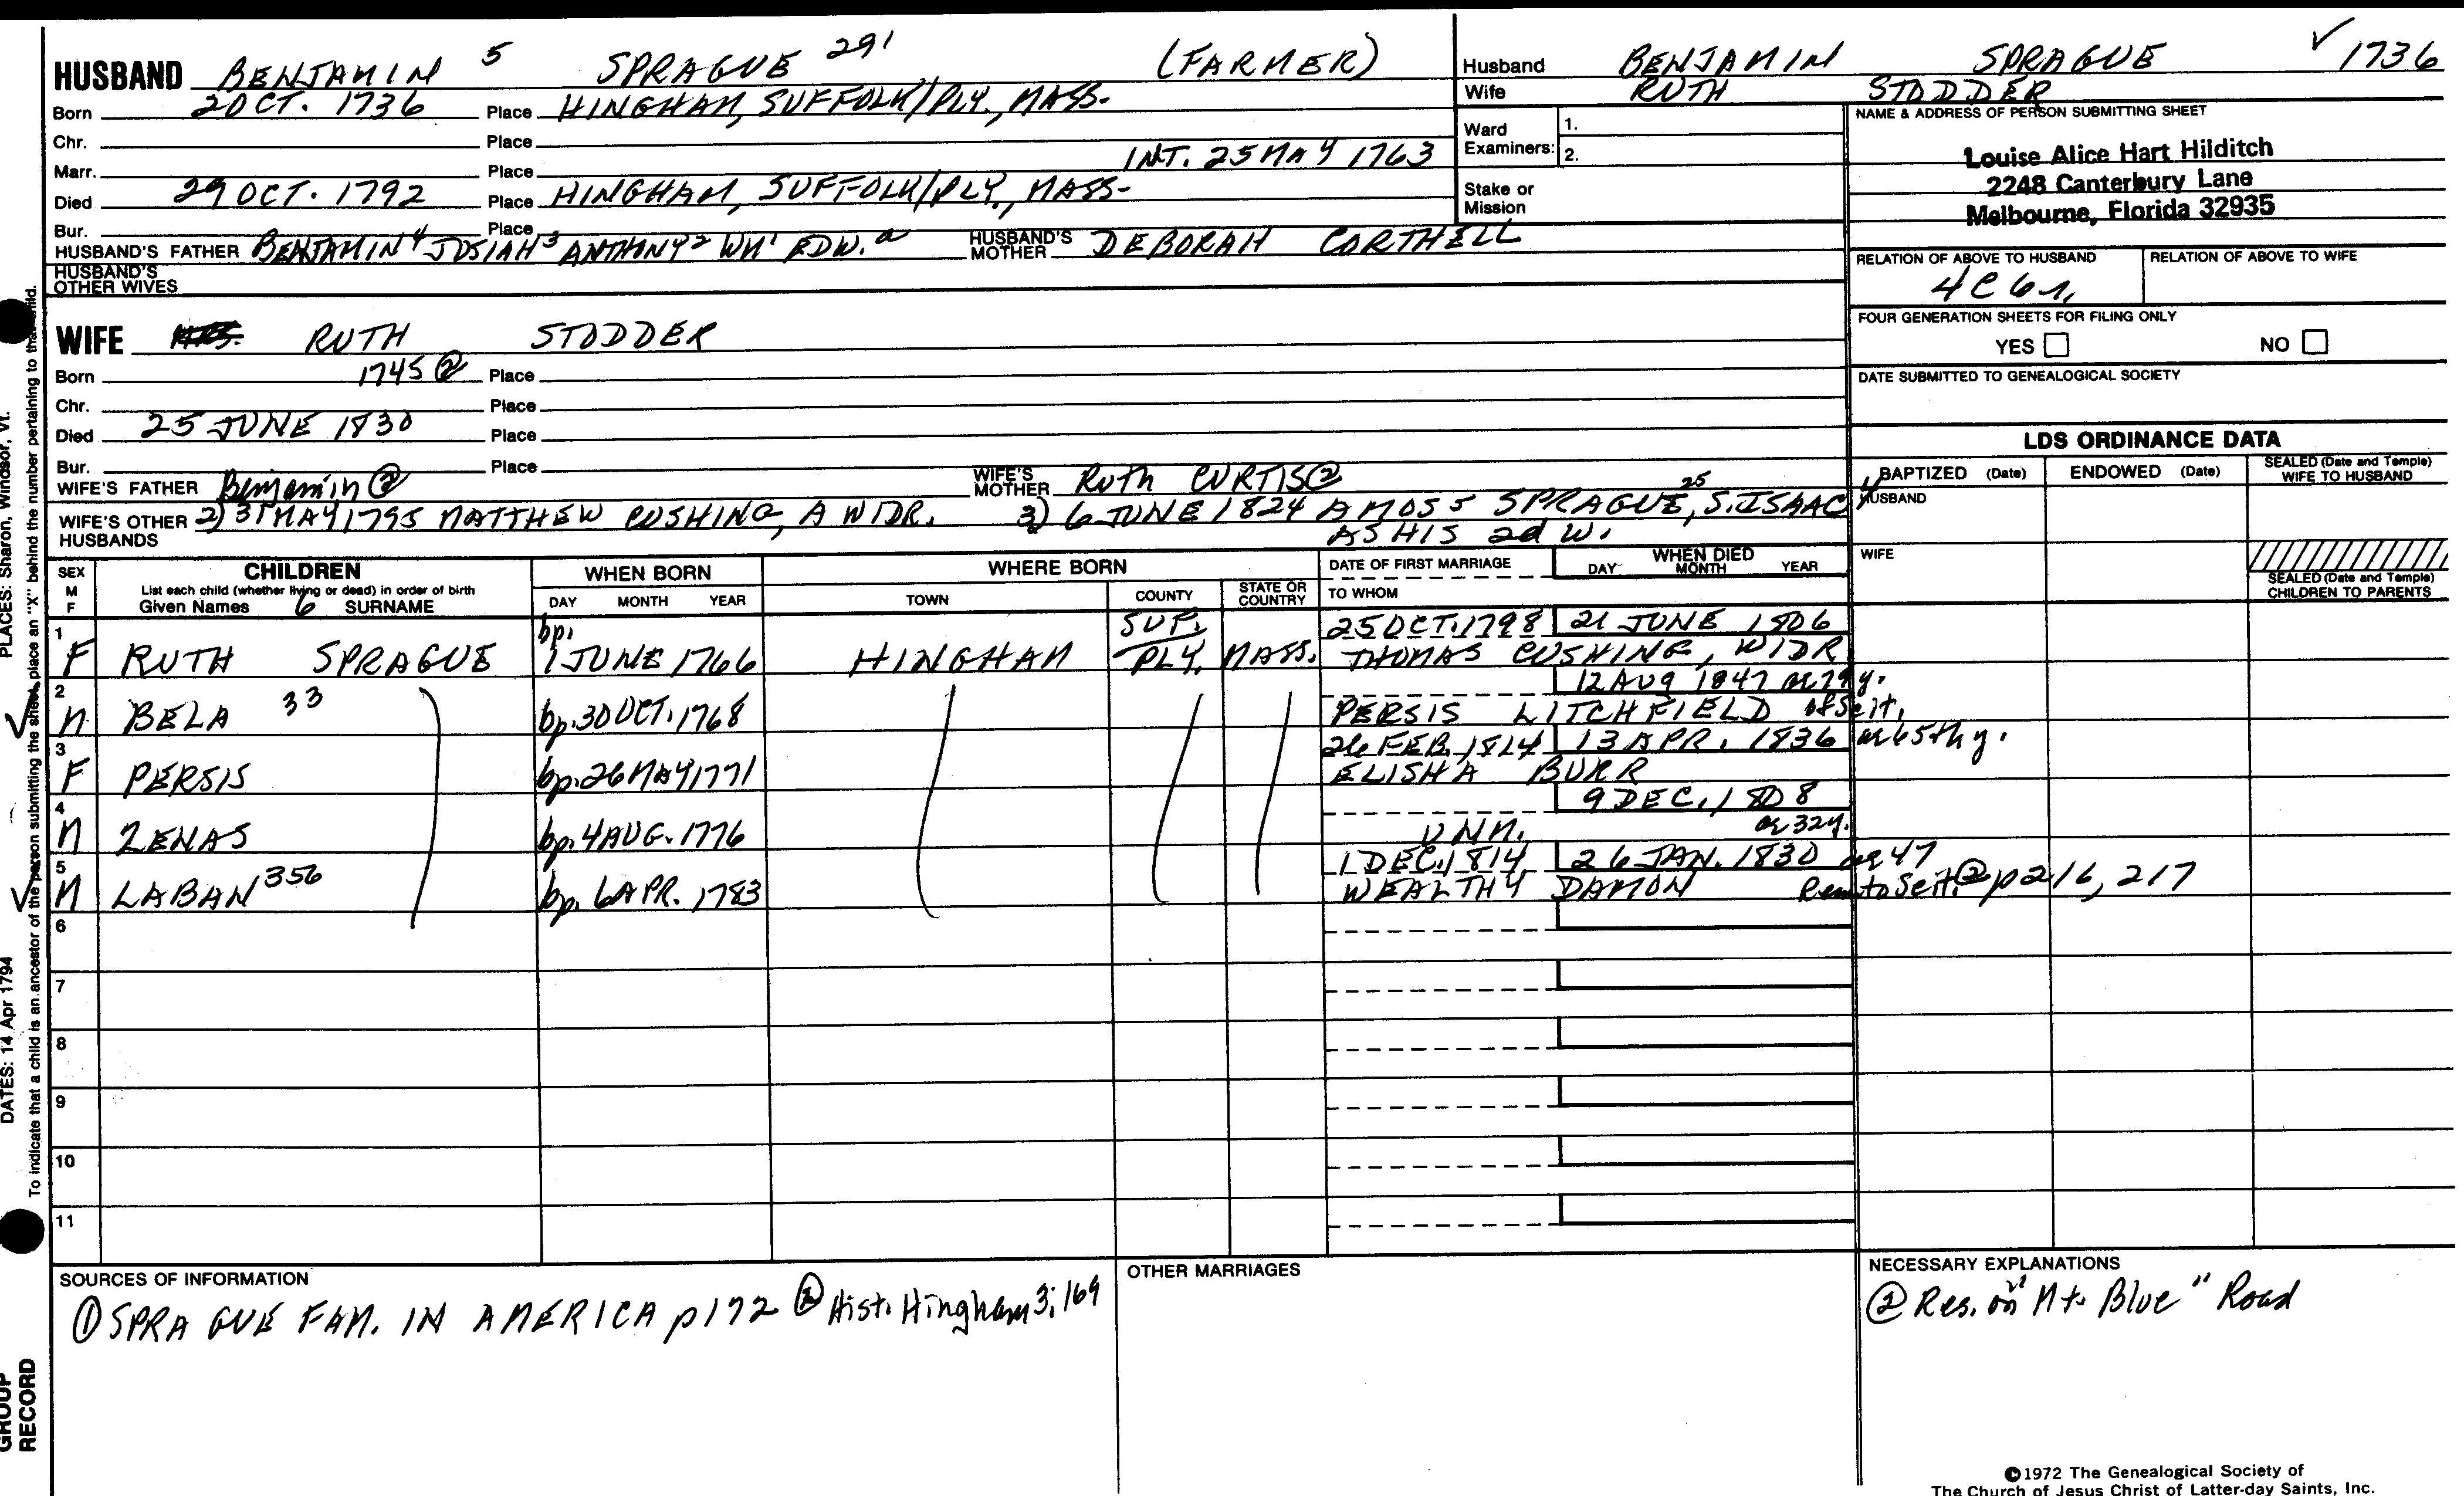 HUSBAND BENJAMIN 5 SPRAGUE 291 (FARMER)
Born 2 OCT. 1736 Place HINGHAM, SUFFOLK/PLY., MASS.
Chr. Place
Marr. Place INT. 25 MAY 1763
Died 29 OCT. 1792 Place HINGHAM, SUFFOLK/PLY., MASS-
Bur. Place
HUSBAND'S FATHER BENJAMIN4 JOSIAH3 ANTHONY2 WM1 EDW.a HUSBAND'S MOTHER DEBORAH CORTHELL
HUSBAND'S OTHER WIVES
Husband BENJAMIN SPRAGUE ✓ 1736
Wife RUTH STODDER
Ward Examiners: 1.
2.
Stake or Mission
NAME & ADDRESS OF PERSON SUBMITTING SHEET
Louise Alice Hart Hilditch
2248 Canterbury Lane
Melbourne, Florida 32935
RELATION OF ABOVE TO HUSBAND RELATION OF ABOVE TO WIFE
4C6r.
FOUR GENERATION SHEETS FOR FILING ONLY
YES NO
DATE SUBMITTED TO GENEALOGICAL SOCIETY
WIFE RUTH STODDER
Born 1745 ② Place
Chr. Place
Died 25 JUNE 1830 Place
Bur. Place
WIFE'S FATHER Benjamin ② WIFE'S MOTHER Ruth CURTIS ②
WIFE'S OTHER HUSBANDS 2) 31 MAY 1795 MATTHEW CUSHING, A WIDR. 3) 6 JUNE 1824 AMOS 5 SPRAGUE, 25 S. ISAAC
AS HIS 2d W.
LDS ORDINANCE DATA
BAPTIZED (Date) ENDOWED (Date) SEALED (Date and Temple) WIFE TO HUSBAND
HUSBAND
WIFE
SEALED (Date and Temple) CHILDREN TO PARENTS
SEX M F CHILDREN
List each child (whether living or dead) in order of birth
Given Names 6 SURNAME
WHEN BORN
DAY MONTH YEAR
WHERE BORN
TOWN COUNTY STATE OR COUNTRY
DATE OF FIRST MARRIAGE
TO WHOM
WHEN DIED
DAY MONTH YEAR
1 F RUTH SPRAGUE bp. 1 JUNE 1766 HINGHAM SUF./PLY. MASS. 25 OCT. 1798 21 JUNE 1806
THOMAS CUSHING, WIDR
2 M BELA 33 bp. 30 OCT. 1768 12 AUG 1847 ae 79 y.
PERSIS LITCHFIELD of Scit.
3 F PERSIS bp. 26 MAY 1771 26 FEB. 1814 13 APR. 1836 ae 65th y.
ELISHA BURR
4 M ZENAS bp. 4 AUG. 1776 9 DEC. 1808
UNM. ae 32y.
5 M LABAN 356 bp. 6 APR. 1783 1 DEC. 1814 26 JAN. 1830 ae 47
WEALTHY DAMON Rem to Scit. ② p 216, 217
6
7
8
9
10
11
SOURCES OF INFORMATION
① SPRAGUE FAM. IN AMERICA p 172 ② Hist. Hingham 3; 169
OTHER MARRIAGES
NECESSARY EXPLANATIONS
② Res. on "Mt. Blue" Road
©1972 The Genealogical Society of
The Church of Jesus Christ of Latter-day Saints, Inc.
PLACES: Sharon, Windsor, Vt.
DATES: 14 Apr 1794
To indicate that a child is an ancestor of the person submitting the sheet, place an "X" behind the number pertaining to that child.
GROUP
RECORD